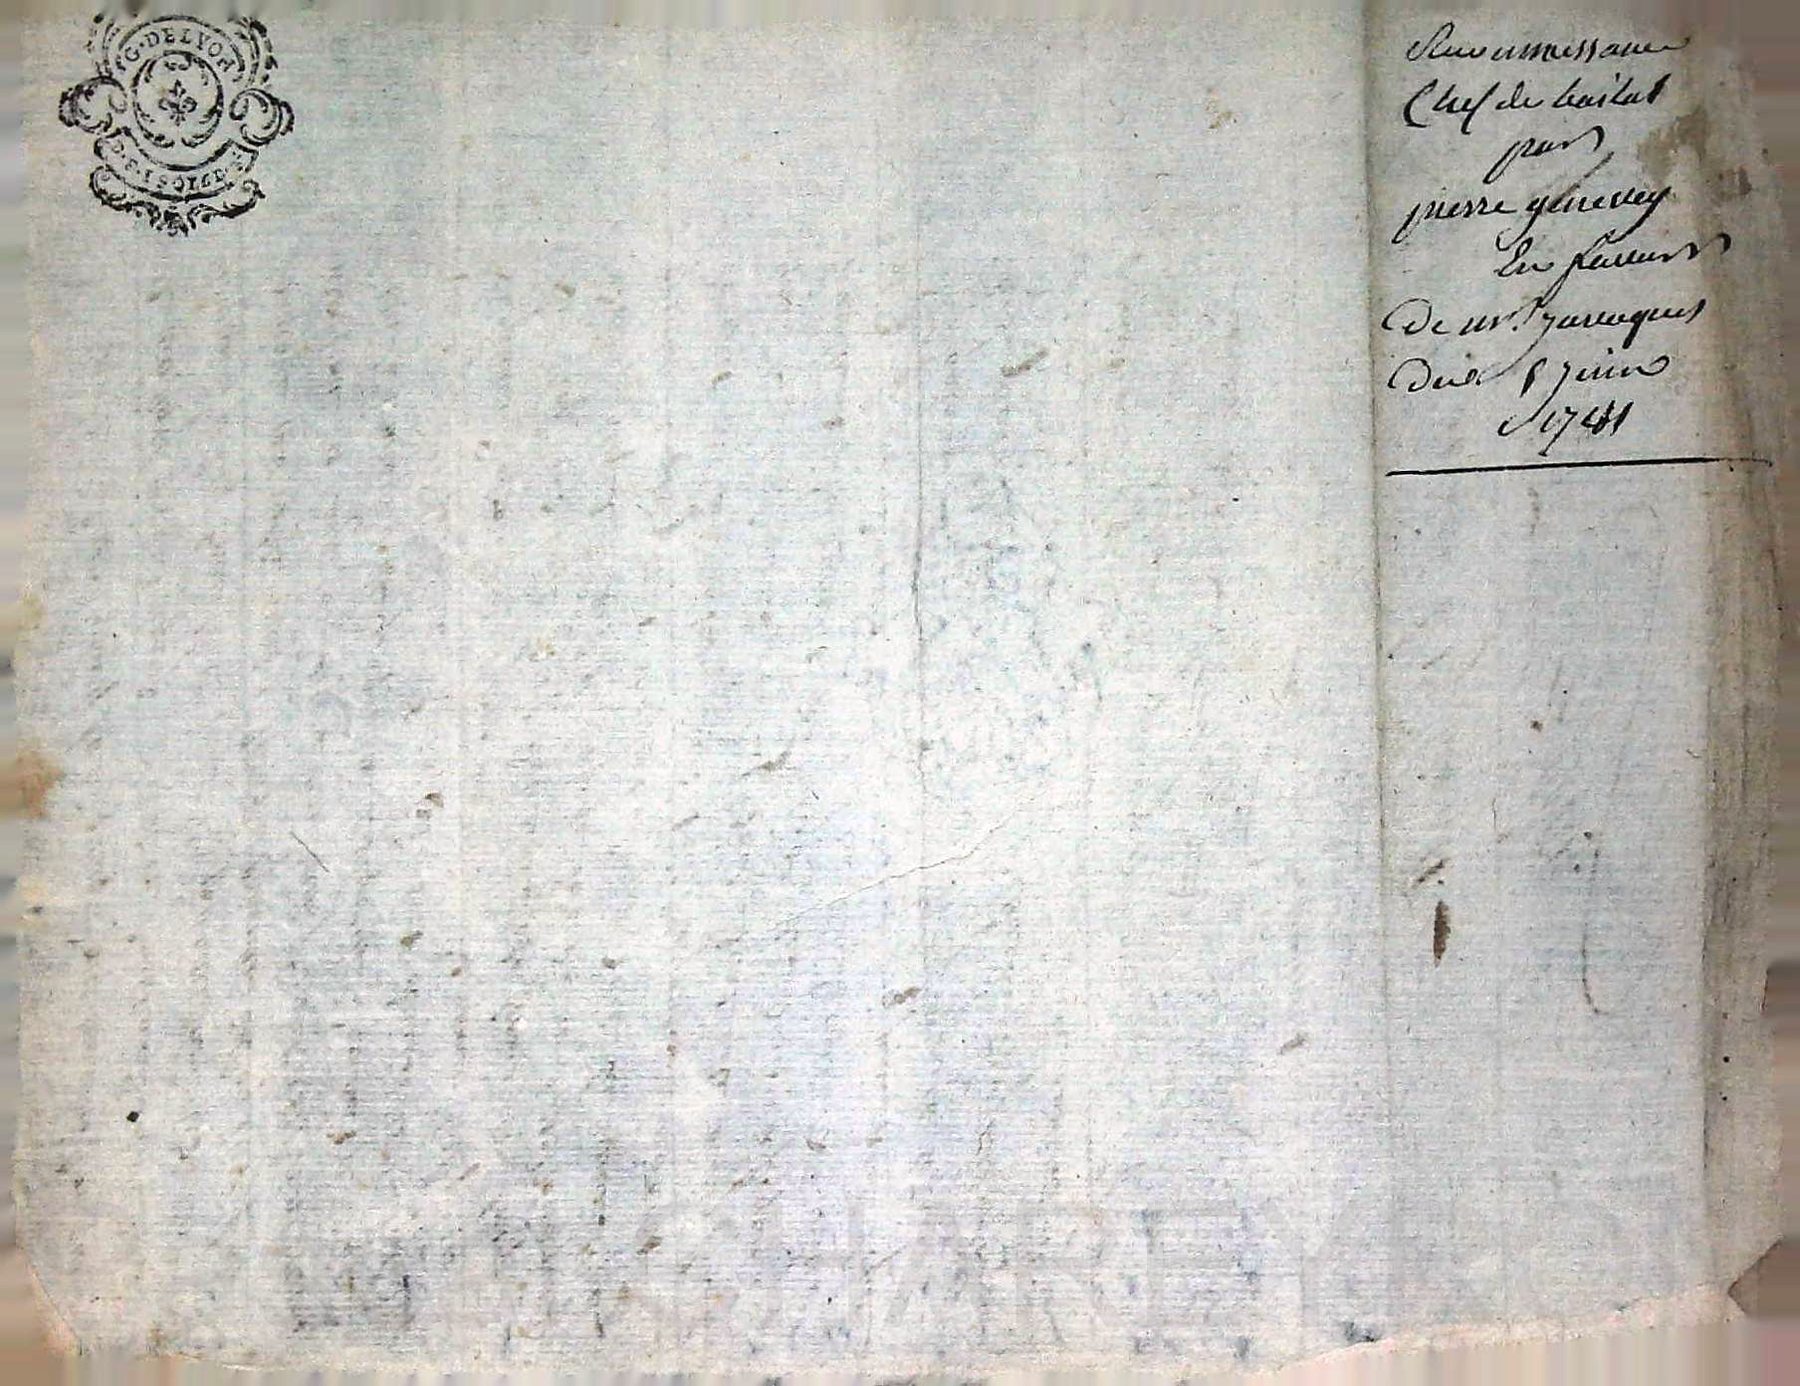 G. DE LYON
D. E. 1 SOL 4 D
Reconnoissance
Chef de bailat
par
pierre genevey
En faveur
De mr. Jarraques
Du 8 Juin
1741